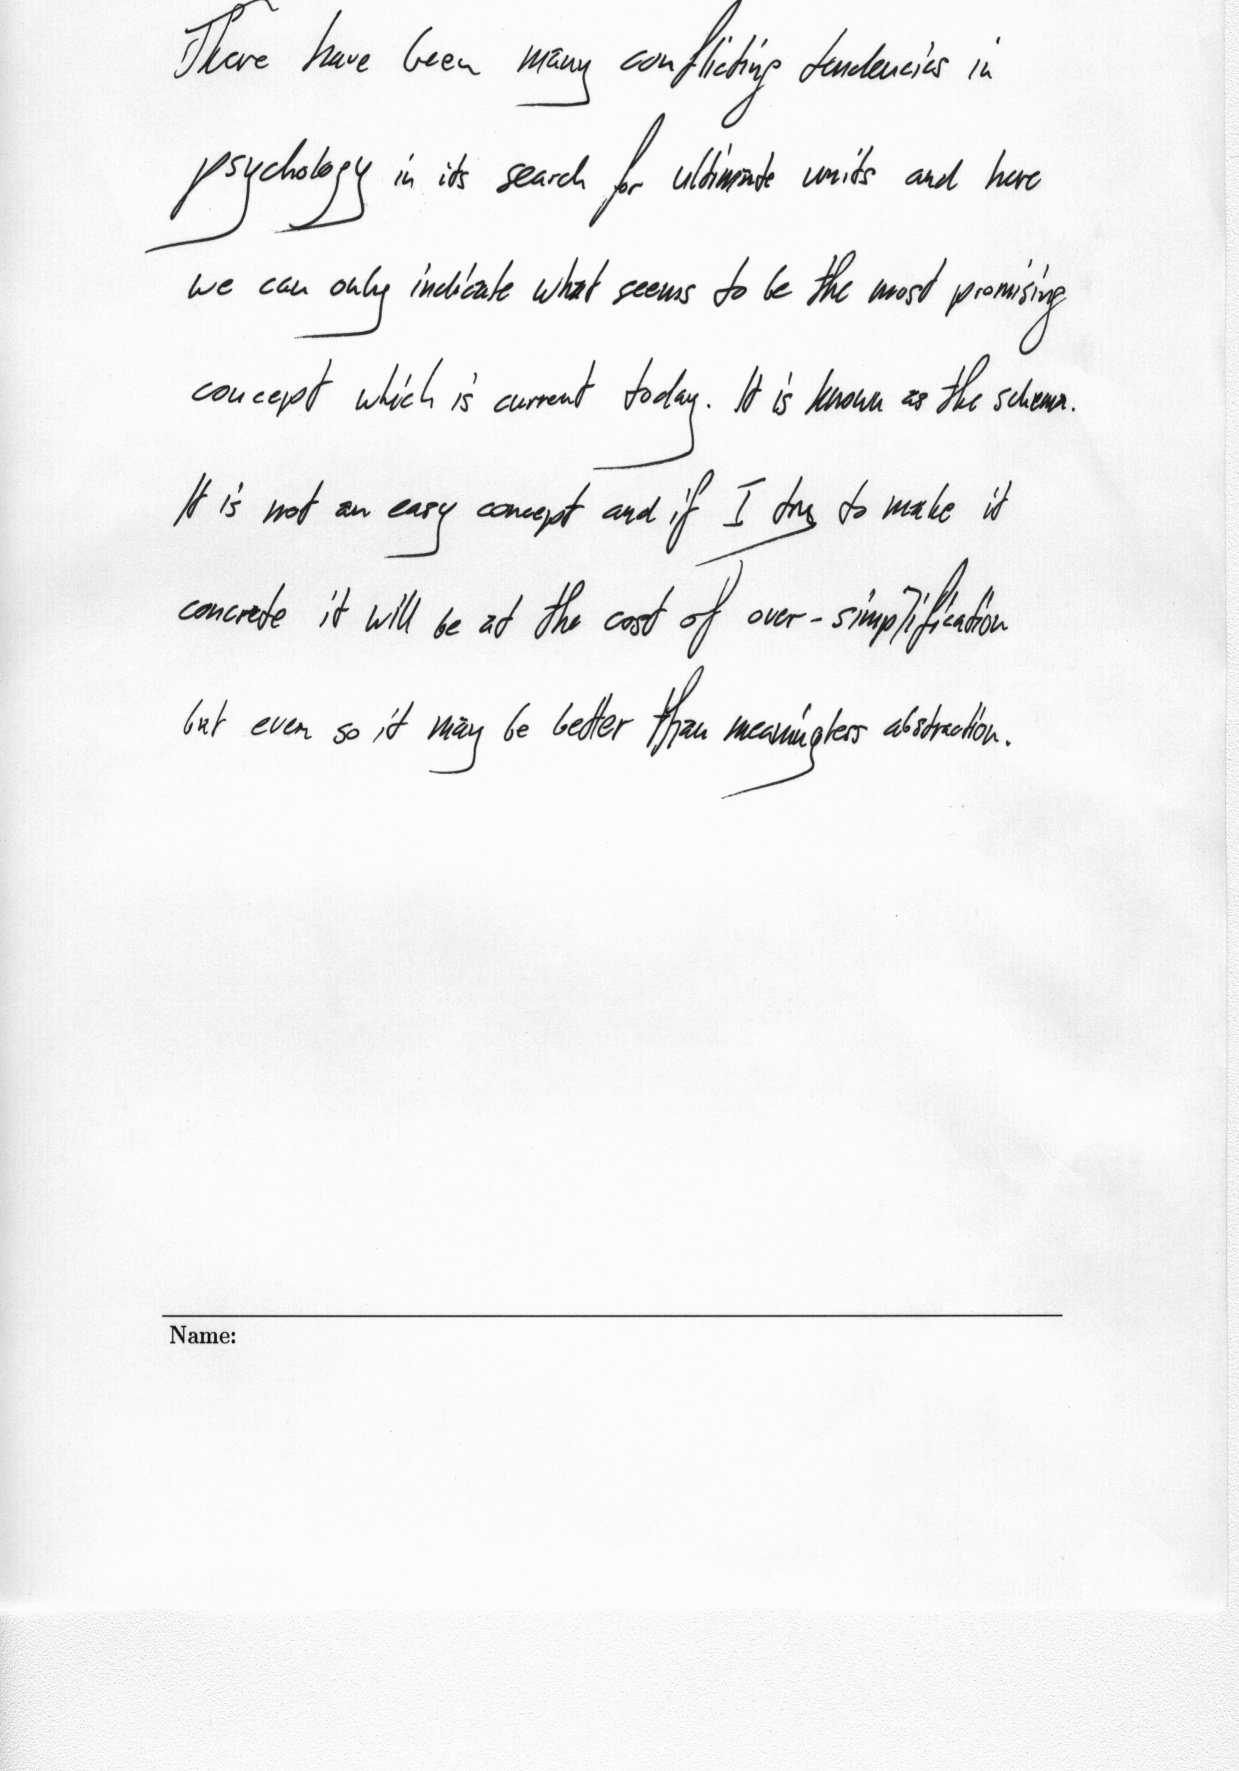 There have been many conflicting tendencies in
psychology in its search for ultimate units and here
we can only indicate what seems to be the most promising
concept which is current today. It is known as the schema.
It is not an easy concept and if I try to make it
concrete it will be at the cost of over-simplification
but even so it may be better than meaningless abstraction.
Name: